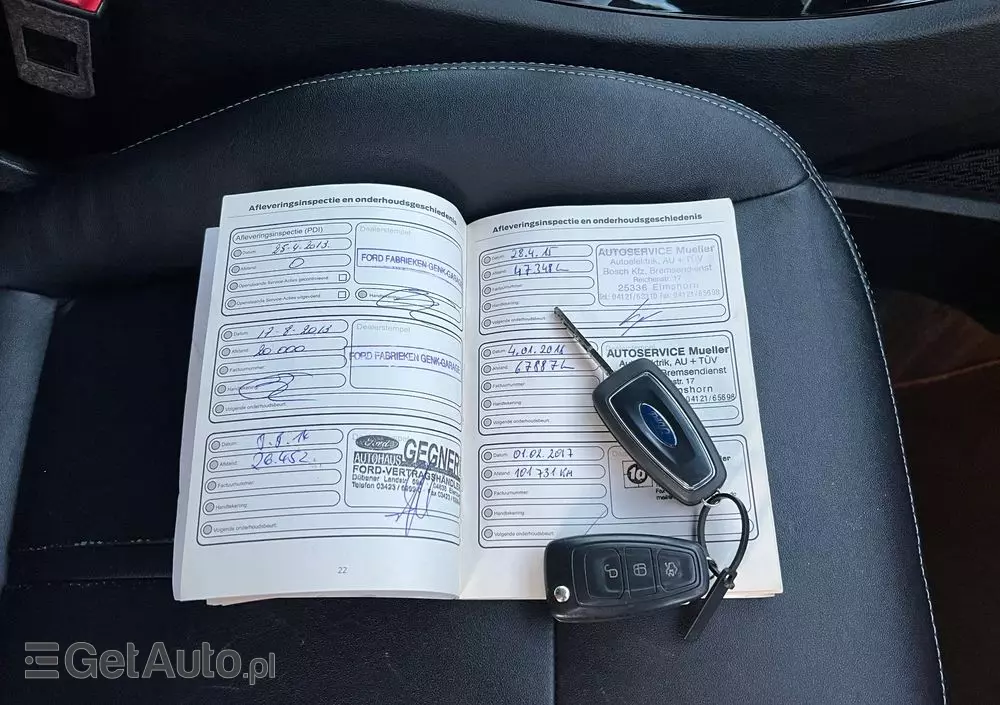 Afleveringsinspectie en onderhoudsgeschiedenis
Afleveringsinspectie (PDI)
Dealerstempel
Datum: 25-4-2013
Afstand: 0
FORD FABRIEKEN GENK-GARAGE
Openstaande Service-Acties gecontroleerd
Openstaande Service-Acties uitgevoerd
Datum: 12-8-2013
Dealerstempel
Afstand: 20.000
FORD FABRIEKEN GENK-GARAGE
Factuurnummer:
Handtekening:
Volgende onderhoudsbeurt:
Datum: 9.9.14
Afstand: 26.452
Ford
AUTOHAUS GEGNER
FORD-VERTRAGSHÄNDLER
Dübener Landstr.
Telefon 03423 /
Factuurnummer:
Handtekening:
Volgende onderhoudsbeurt:
22
Afleveringsinspectie en onderhoudsgeschiedenis
Datum: 28.4.15
Afstand: 47348
Factuurnummer:
Handtekening:
Volgende onderhoudsbeurt:
AUTOSERVICE Mueller
Autoelektrik, AU + TÜV
Bosch Kfz, Bremsendienst
Reichenstr. 17
25336 Elmshorn
Datum: 4.01.2016
Afstand: 67887
Factuurnummer:
Handtekening:
Volgende onderhoudsbeurt:
AUTOSERVICE Mueller
elektrik, AU + TÜV
Bremsendienst
str. 17
mshorn
04121/65698
Datum: 01.02.2017
Afstand: 101731 KM
Factuurnummer:
Handtekening:
Volgende onderhoudsbeurt:
Ford
GetAuto.pl